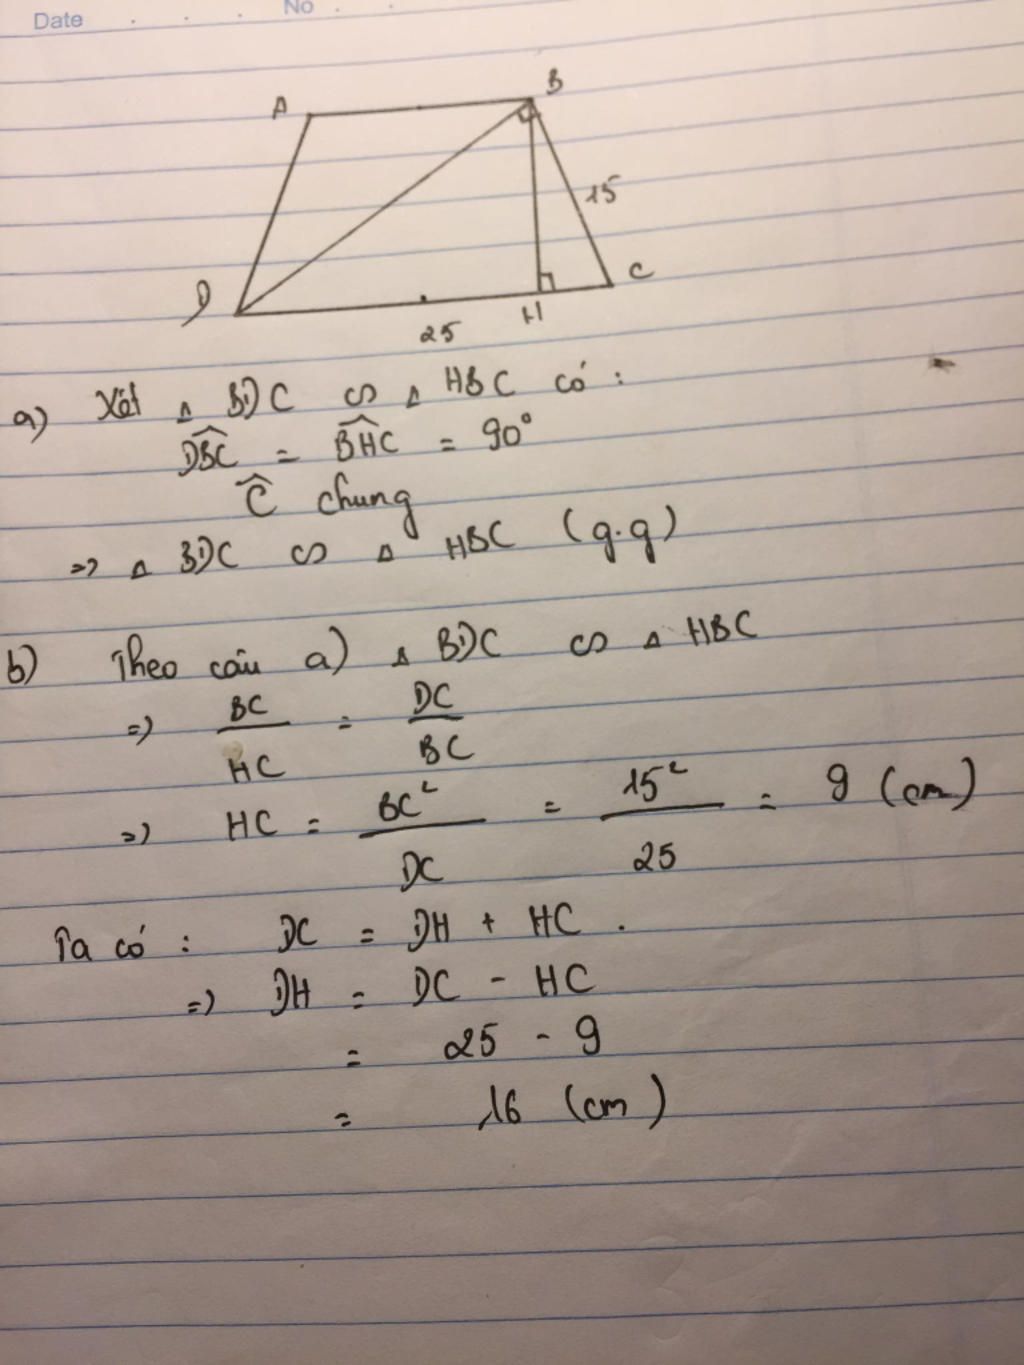 Date . . . No . .
A B
15
D C
25 H
a) Xét △ BDC ∽ △ HBC có :
D̂BC = B̂HC = 90°
Ĉ chung
=> △ BDC ∽ △ HBC (g.g)
b) Theo câu a) △ BDC ∽ △ HBC
=> BC/HC = DC/BC
=> HC = BC²/DC = 15²/25 = 9 (cm)
Ta có : DC = DH + HC .
=> DH = DC - HC
= 25 - 9
= 16 (cm)